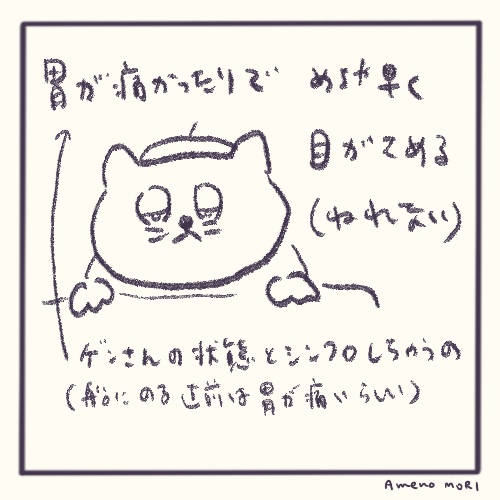 胃が痛かったりで めちゃ早く
目がさめる
(ねれてない)
ゲンさんの状態とシンクロしちゃうの
(船にのる直前は胃が痛いらしい)
Ameno MORI